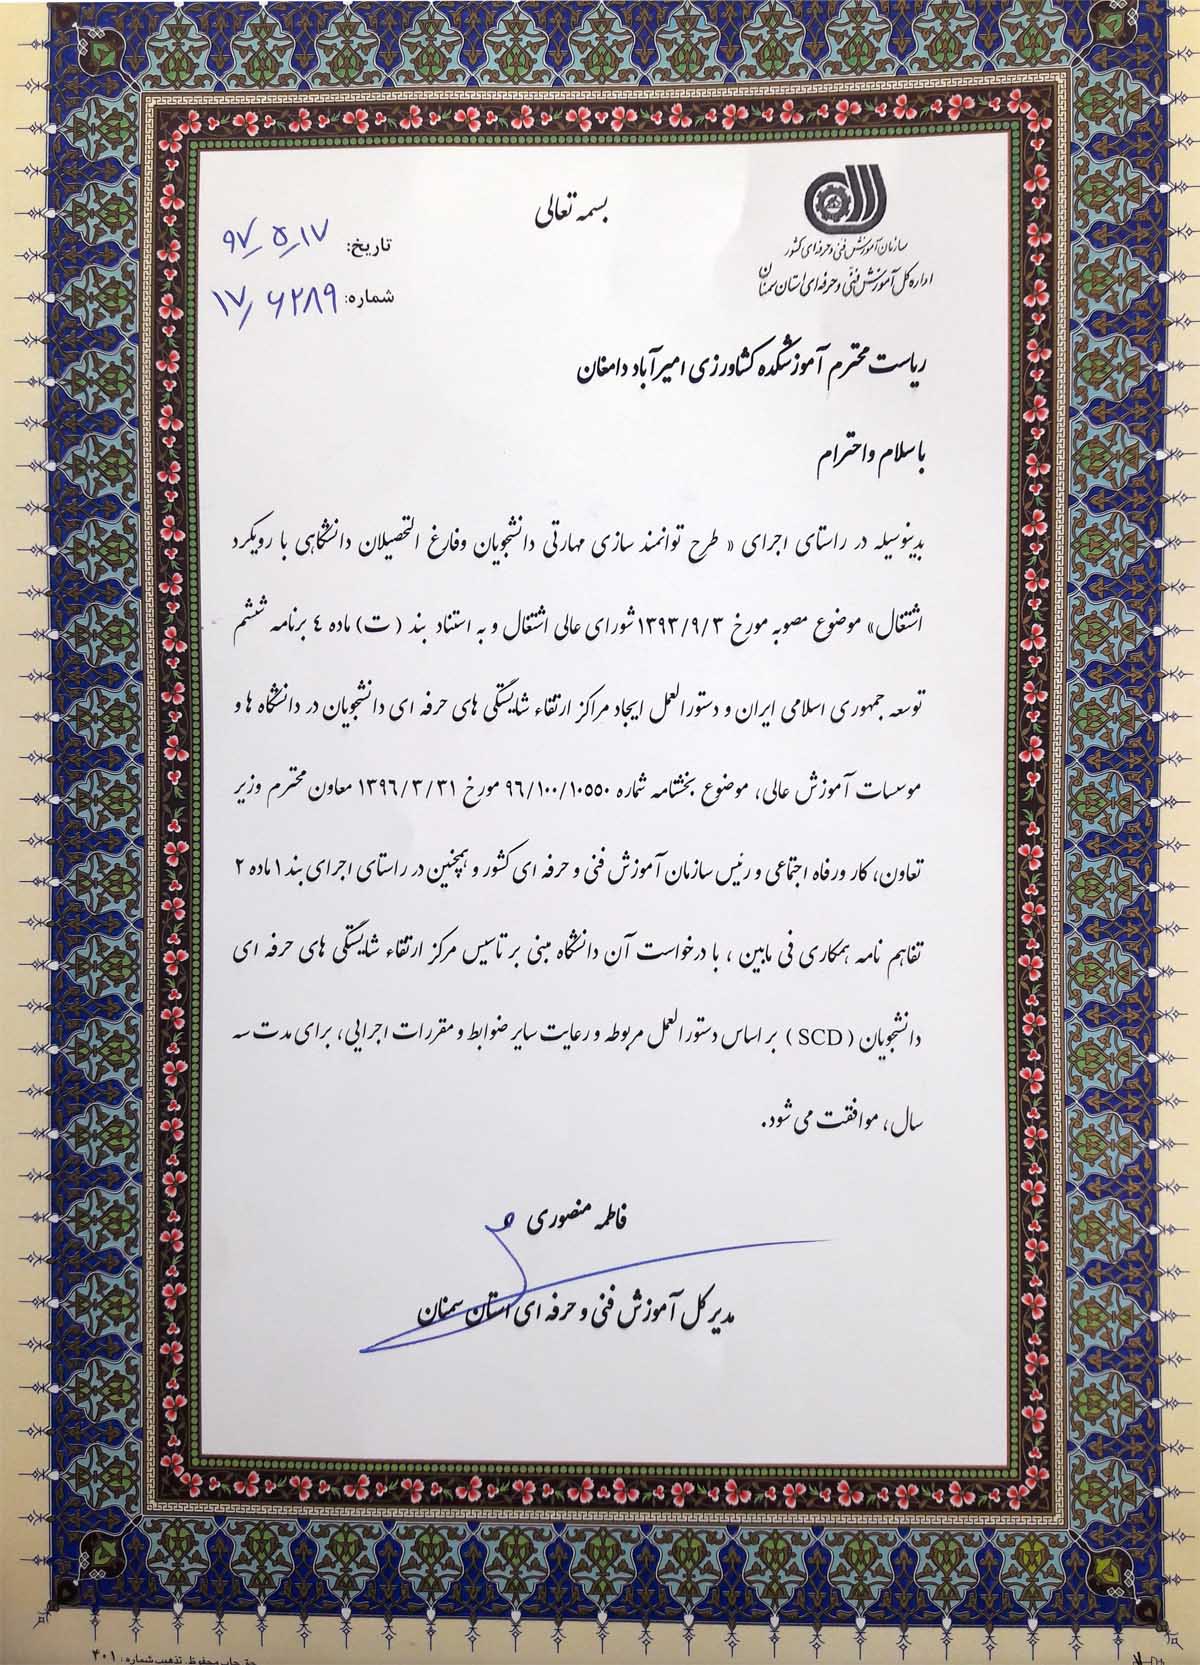 بسمه تعالی
سازمان آموزش فنی و حرفه ای کشور
اداره کل آموزش فنی و حرفه ای استان سمنان
تاریخ: ۹۷/۵/۱۷
شماره: ۱۷/۶۲۸۹
ریاست محترم آموزشکده کشاورزی امیرآباد دامغان
با سلام و احترام
بدینوسیله در راستای اجرای « طرح توانمند سازی مهارتی دانشجویان وفارغ التحصیلان دانشگاهی با رویکرد
اشتغال» موضوع مصوبه مورخ ۱۳۹۳/۹/۳ شورای عالی اشتغال و به استناد بند ( ت) ماده ٤ برنامه ششم
توسعه جمهوری اسلامی ایران و دستورالعمل ایجاد مراکز ارتقاء شایستگی های حرفه ای دانشجویان در دانشگاه ها و
موسسات آموزش عالی، موضوع بخشنامه شماره ۹٦/۱۰۰/۱۰۵۵۰ مورخ ۱۳۹٦/۳/۳۱ معاون محترم وزیر
تعاون، کار ورفاه اجتماعی و رئیس سازمان آموزش فنی و حرفه ای کشور و همچنین در راستای اجرای بند ۱ ماده ۲
تفاهم نامه همکاری فی مابین ، با درخواست آن دانشگاه مبنی بر تاسیس مرکز ارتقاء شایستگی های حرفه ای
دانشجویان ( SCD ) بر اساس دستورالعمل مربوطه و رعایت سایر ضوابط و مقررات اجرایی، برای مدت سه
سال، موافقت می شود.
فاطمه منصوری
مدیر کل آموزش فنی و حرفه ای استان سمنان
حق چاپ محفوظ. تذهیب شماره: ۴۰۱